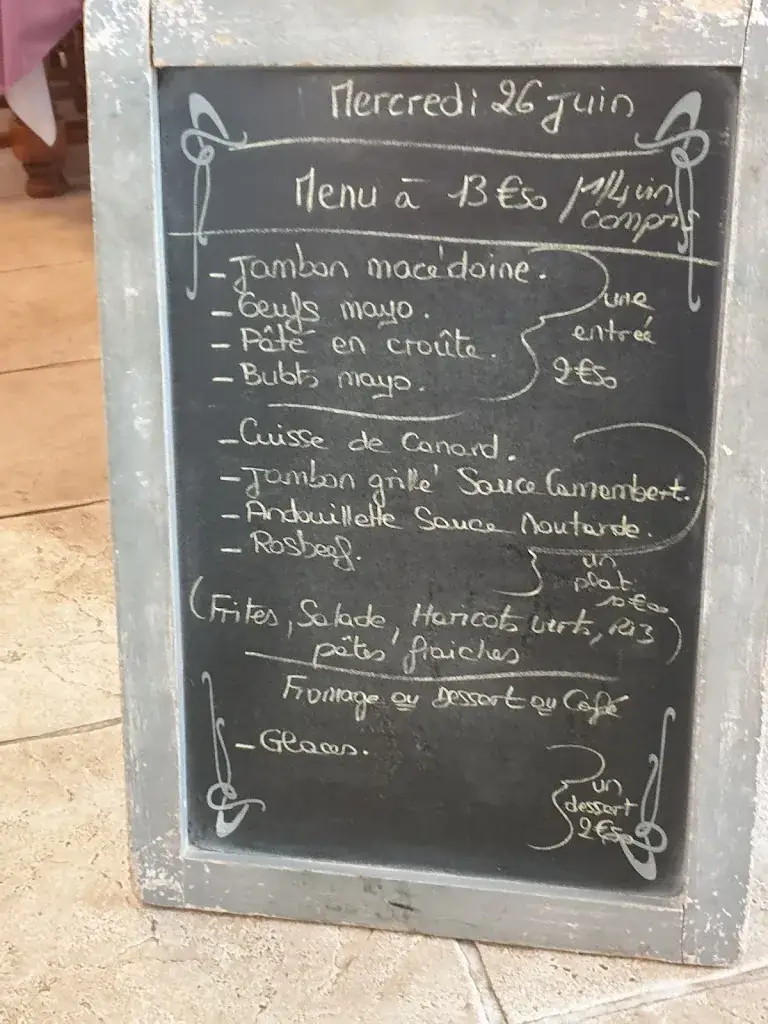 Mercredi 26 Juin
Menu à 13€50 /1/4 vin
compris
- Jambon macédoine.
- Oeufs mayo.
- Pâté en croûte.
- Bulots mayo.
une
entrée
2€50
- Cuisse de Canard.
- Jambon grillé Sauce Camembert.
- Andouillette Sauce Moutarde.
- Rosbeef.
un
plat
10€00
(Frites, Salade, Haricots verts, Riz)
pâtes fraiches
Fromage ou Dessert ou Café
- Glaces.
un
dessert
2€50